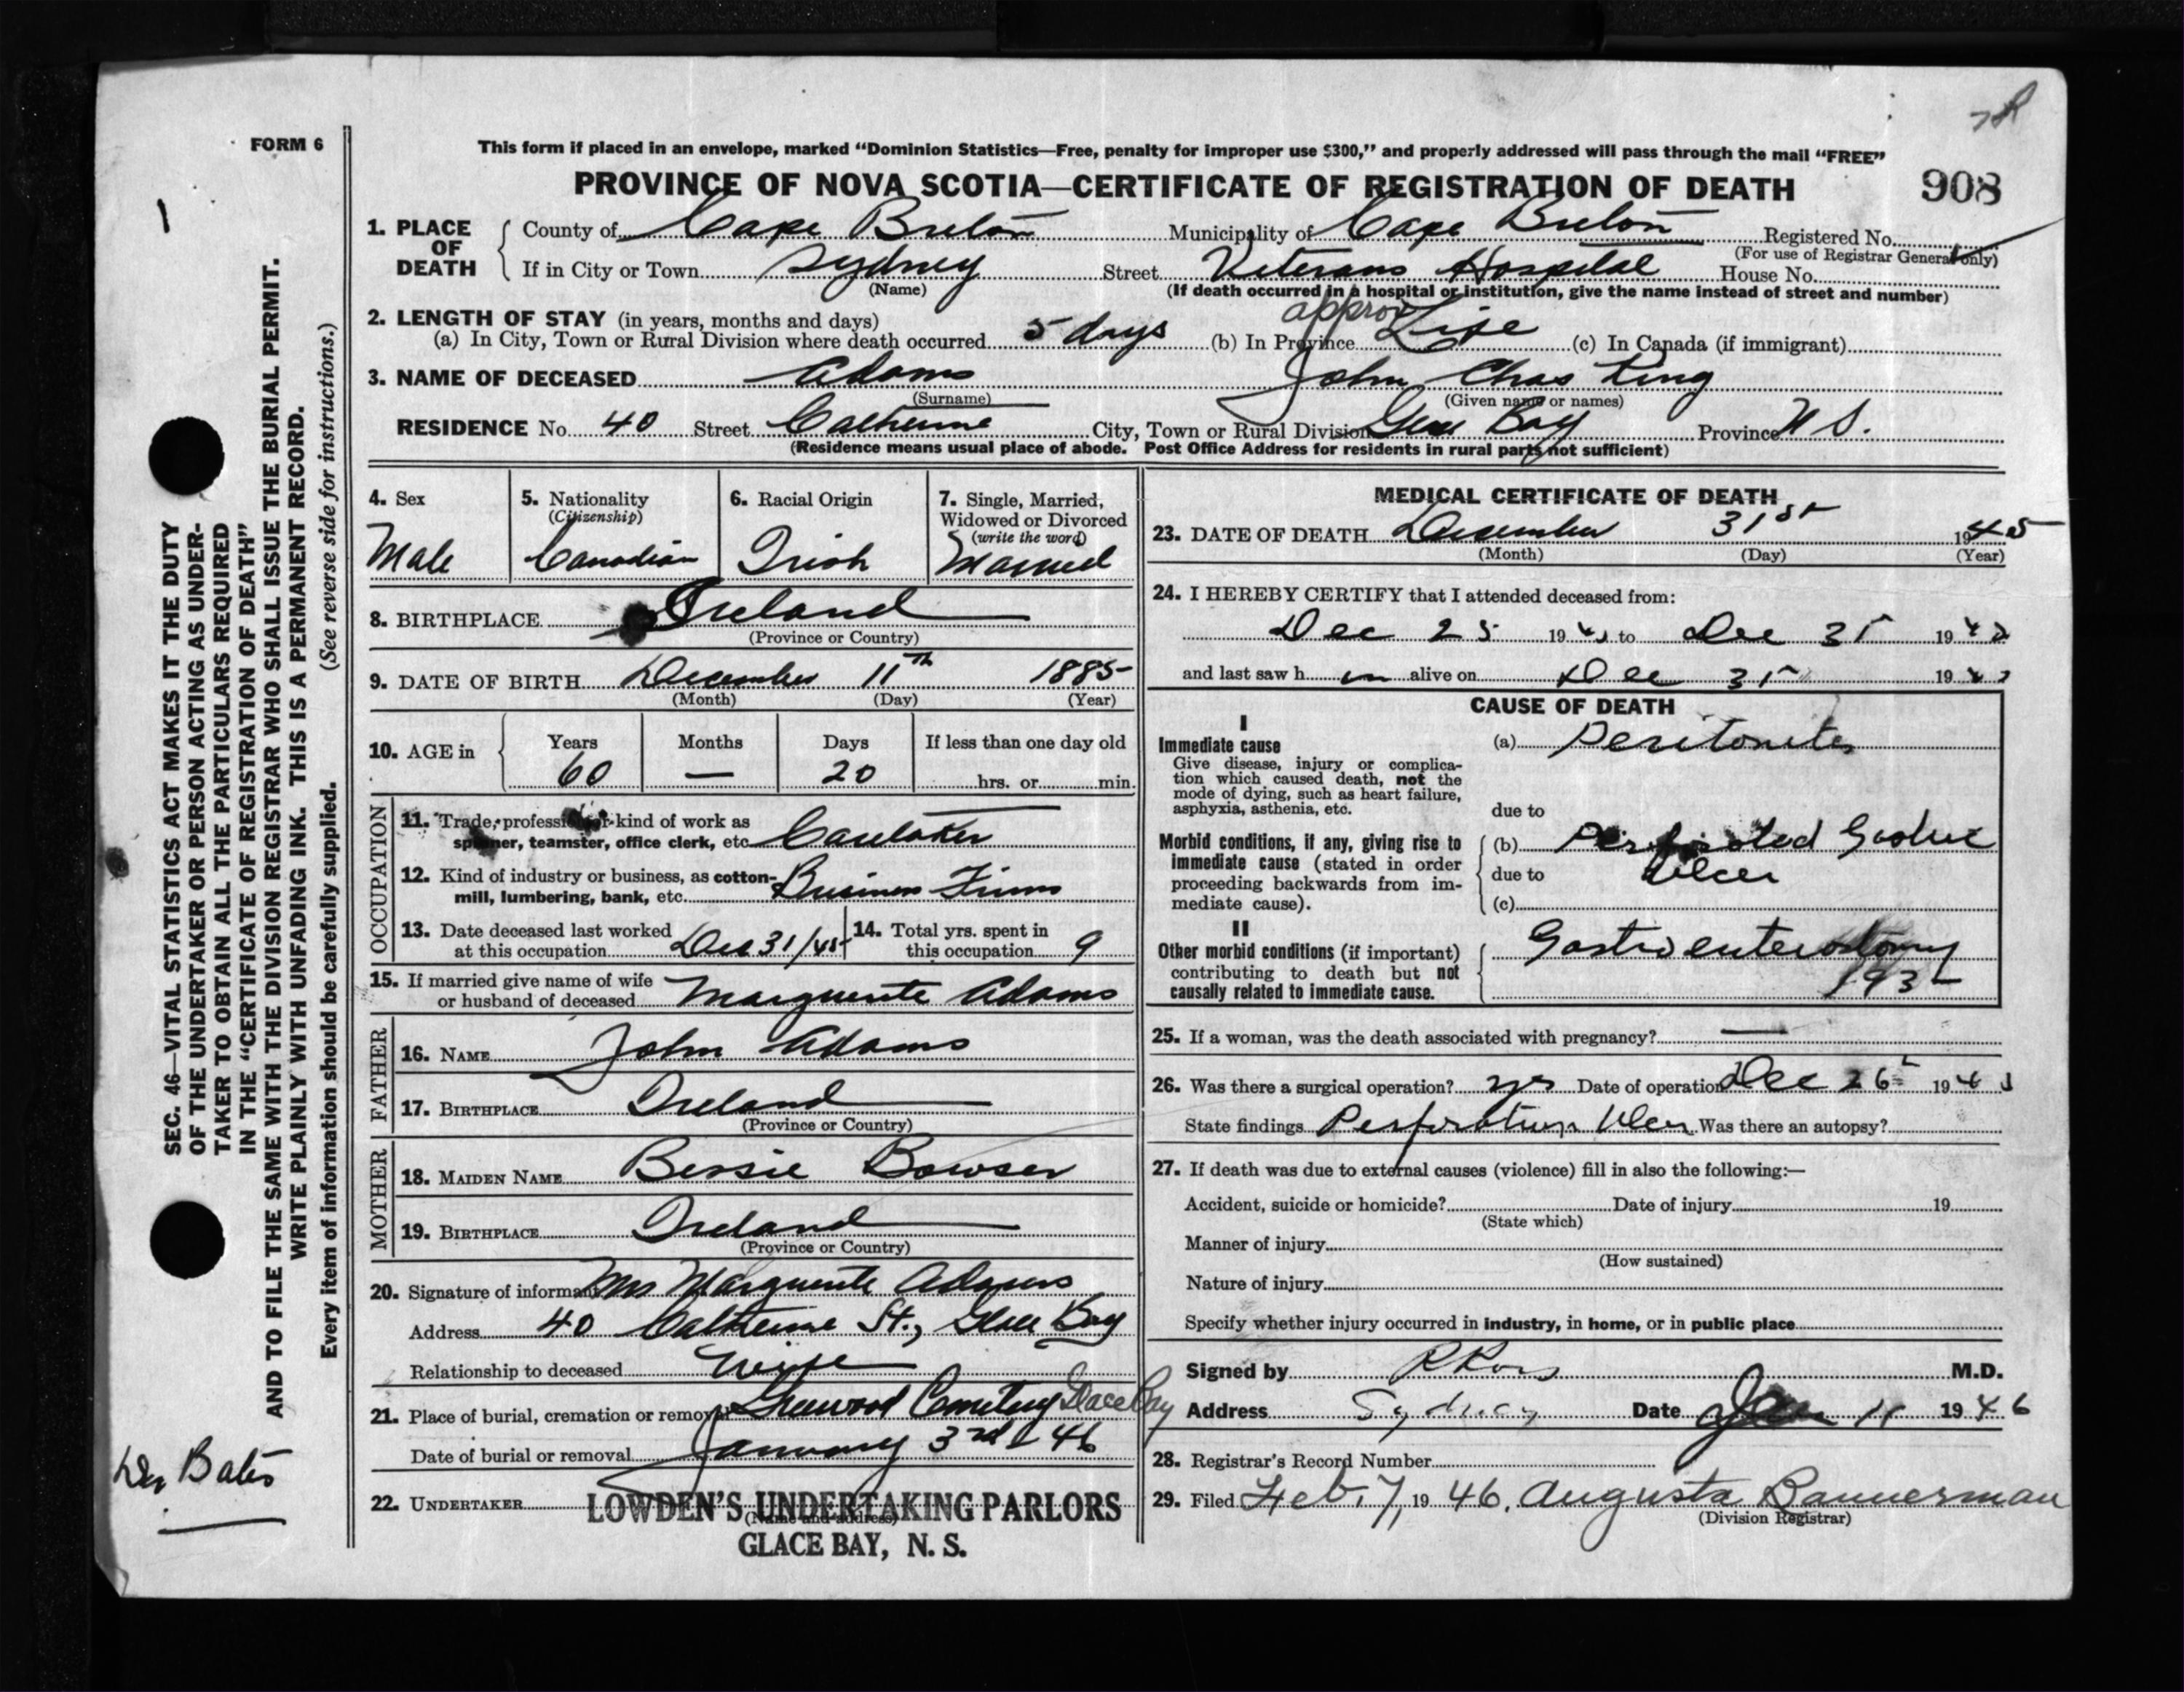 FORM 6
This form if placed in an envelope, marked “Dominion Statistics—Free, penalty for improper use $300,” and properly addressed will pass through the mail “FREE”
PROVINCE OF NOVA SCOTIA—CERTIFICATE OF REGISTRATION OF DEATH 908
1. PLACE OF DEATH
County of Cape Breton Municipality of Cape Breton Registered No.
(For use of Registrar General only)
If in City or Town Sydney Street Veterans Hospital House No.
(Name) (If death occurred in a hospital or institution, give the name instead of street and number)
2. LENGTH OF STAY (in years, months and days)
(a) In City, Town or Rural Division where death occurred 5 days (b) In Province approx Life (c) In Canada (if immigrant)
3. NAME OF DECEASED Adams John Chas King
(Surname) (Given name or names)
RESIDENCE No. 40 Street Catherine City, Town or Rural Division Glace Bay Province N S.
(Residence means usual place of abode. Post Office Address for residents in rural parts not sufficient)
4. Sex Male
5. Nationality (Citizenship) Canadian
6. Racial Origin Irish
7. Single, Married, Widowed or Divorced (write the word) Married
8. BIRTHPLACE Ireland
(Province or Country)
9. DATE OF BIRTH December 11th 1885
(Month) (Day) (Year)
10. AGE in Years 60 Months — Days 20 If less than one day old hrs. or min.
OCCUPATION
11. Trade, profession or kind of work as spinner, teamster, office clerk, etc. Caretaker
12. Kind of industry or business, as cotton-mill, lumbering, bank, etc. Business Firms
13. Date deceased last worked at this occupation Dec 31/45
14. Total yrs. spent in this occupation 9
15. If married give name of wife or husband of deceased Marguerite Adams
FATHER
16. NAME John Adams
17. BIRTHPLACE Ireland
(Province or Country)
MOTHER
18. MAIDEN NAME Bessie Bowser
19. BIRTHPLACE Ireland
(Province or Country)
20. Signature of informant Mrs Marguerite Adams
Address 40 Catherine St., Glace Bay
Relationship to deceased Wife
21. Place of burial, cremation or removal Greenwood Cemetery Glace Bay
Date of burial or removal January 3rd 46
22. UNDERTAKER LOWDEN'S UNDERTAKING PARLORS
(Name and address)
GLACE BAY, N. S.
MEDICAL CERTIFICATE OF DEATH
23. DATE OF DEATH December 31st 1945
(Month) (Day) (Year)
24. I HEREBY CERTIFY that I attended deceased from:
Dec 25 19 to Dec 31 19
and last saw h im alive on Dec 31 19
CAUSE OF DEATH
I
Immediate cause
Give disease, injury or complication which caused death, not the mode of dying, such as heart failure, asphyxia, asthenia, etc.
(a) Peritonitis
due to
Morbid conditions, if any, giving rise to immediate cause (stated in order proceeding backwards from immediate cause).
(b) Perforated Gastric
due to Ulcer
(c)
II
Other morbid conditions (if important) contributing to death but not causally related to immediate cause.
Gastroenterostomy
25. If a woman, was the death associated with pregnancy? —
26. Was there a surgical operation? yes Date of operation Dec 26 19
State findings Ulcer Was there an autopsy?
27. If death was due to external causes (violence) fill in also the following:—
Accident, suicide or homicide? Date of injury 19
(State which)
Manner of injury
(How sustained)
Nature of injury
Specify whether injury occurred in industry, in home, or in public place
Signed by M.D.
Address Sydney Date Jan 1946
28. Registrar's Record Number
29. Filed Feb. 7, 19 46, Augusta Bannerman
(Division Registrar)
SEC. 46—VITAL STATISTICS ACT MAKES IT THE DUTY
OF THE UNDERTAKER OR PERSON ACTING AS UNDER-
TAKER TO OBTAIN ALL THE PARTICULARS REQUIRED
IN THE “CERTIFICATE OF REGISTRATION OF DEATH”
AND TO FILE THE SAME WITH THE DIVISION REGISTRAR WHO SHALL ISSUE THE BURIAL PERMIT.
WRITE PLAINLY WITH UNFADING INK. THIS IS A PERMANENT RECORD.
Every item of information should be carefully supplied. (See reverse side for instructions.)